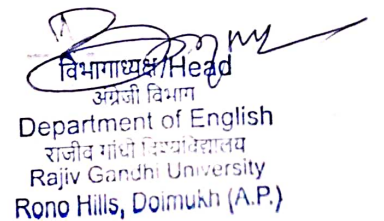 विभागाध्यक्ष/Head
अंग्रेजी विभाग
Department of English
राजीव गांधी विश्वविद्यालय
Rajiv Gandhi University
Rono Hills, Doimukh (A.P.)